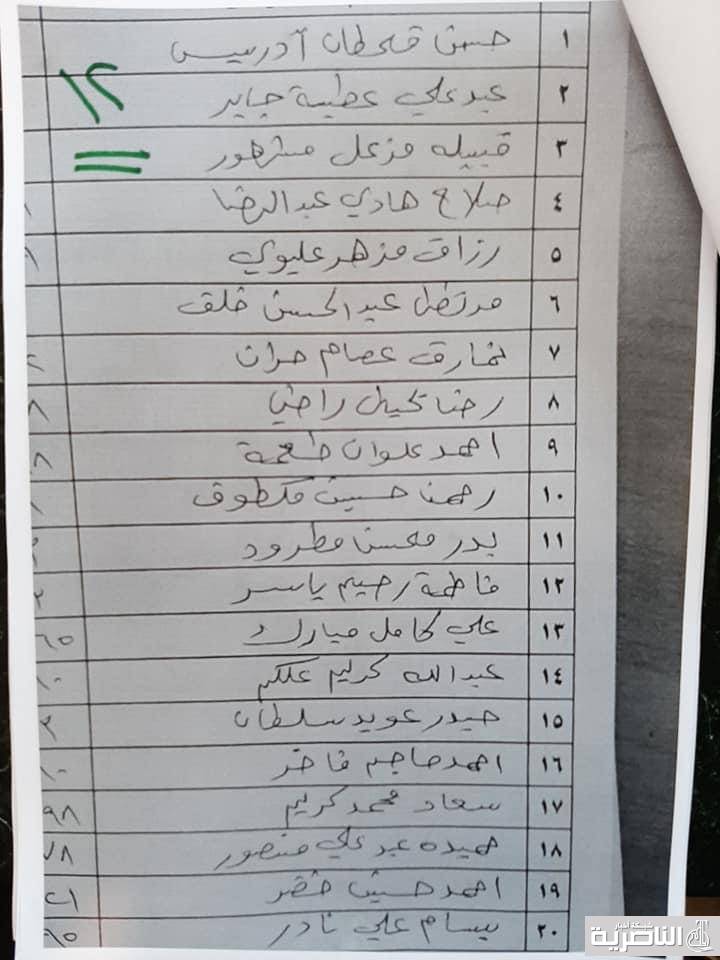 ١ حسن قحطان آدريس
٢ عبد علي عطية جابر
١٢
٣ قبيله مزعل مشهور
٤ صلاح هادي عبد الرضا
٥ رزاق مزهر عليوي
٦ مرتضى عبد الحسن خلف
٧ نمارق عصام
٨ رضا راضي
٩ احمد علوان طعمة
١٠ حسين مكطوف
١١ بدر محسن مطرود
١٢ فاطمة رحيم ياسر
١٣ علي كامل مبارك
١٤ عبدالله كريم
١٥ حيدر عويد سلطان
١٦ احمد فاخر
١٧ سعاد محمد كريم ٩٨
١٨ حميده عبد علي منصور ٧٨
١٩ احمد حسين خضر
٢٠ بسام علي نادر
شبكة أخبار الناصرية